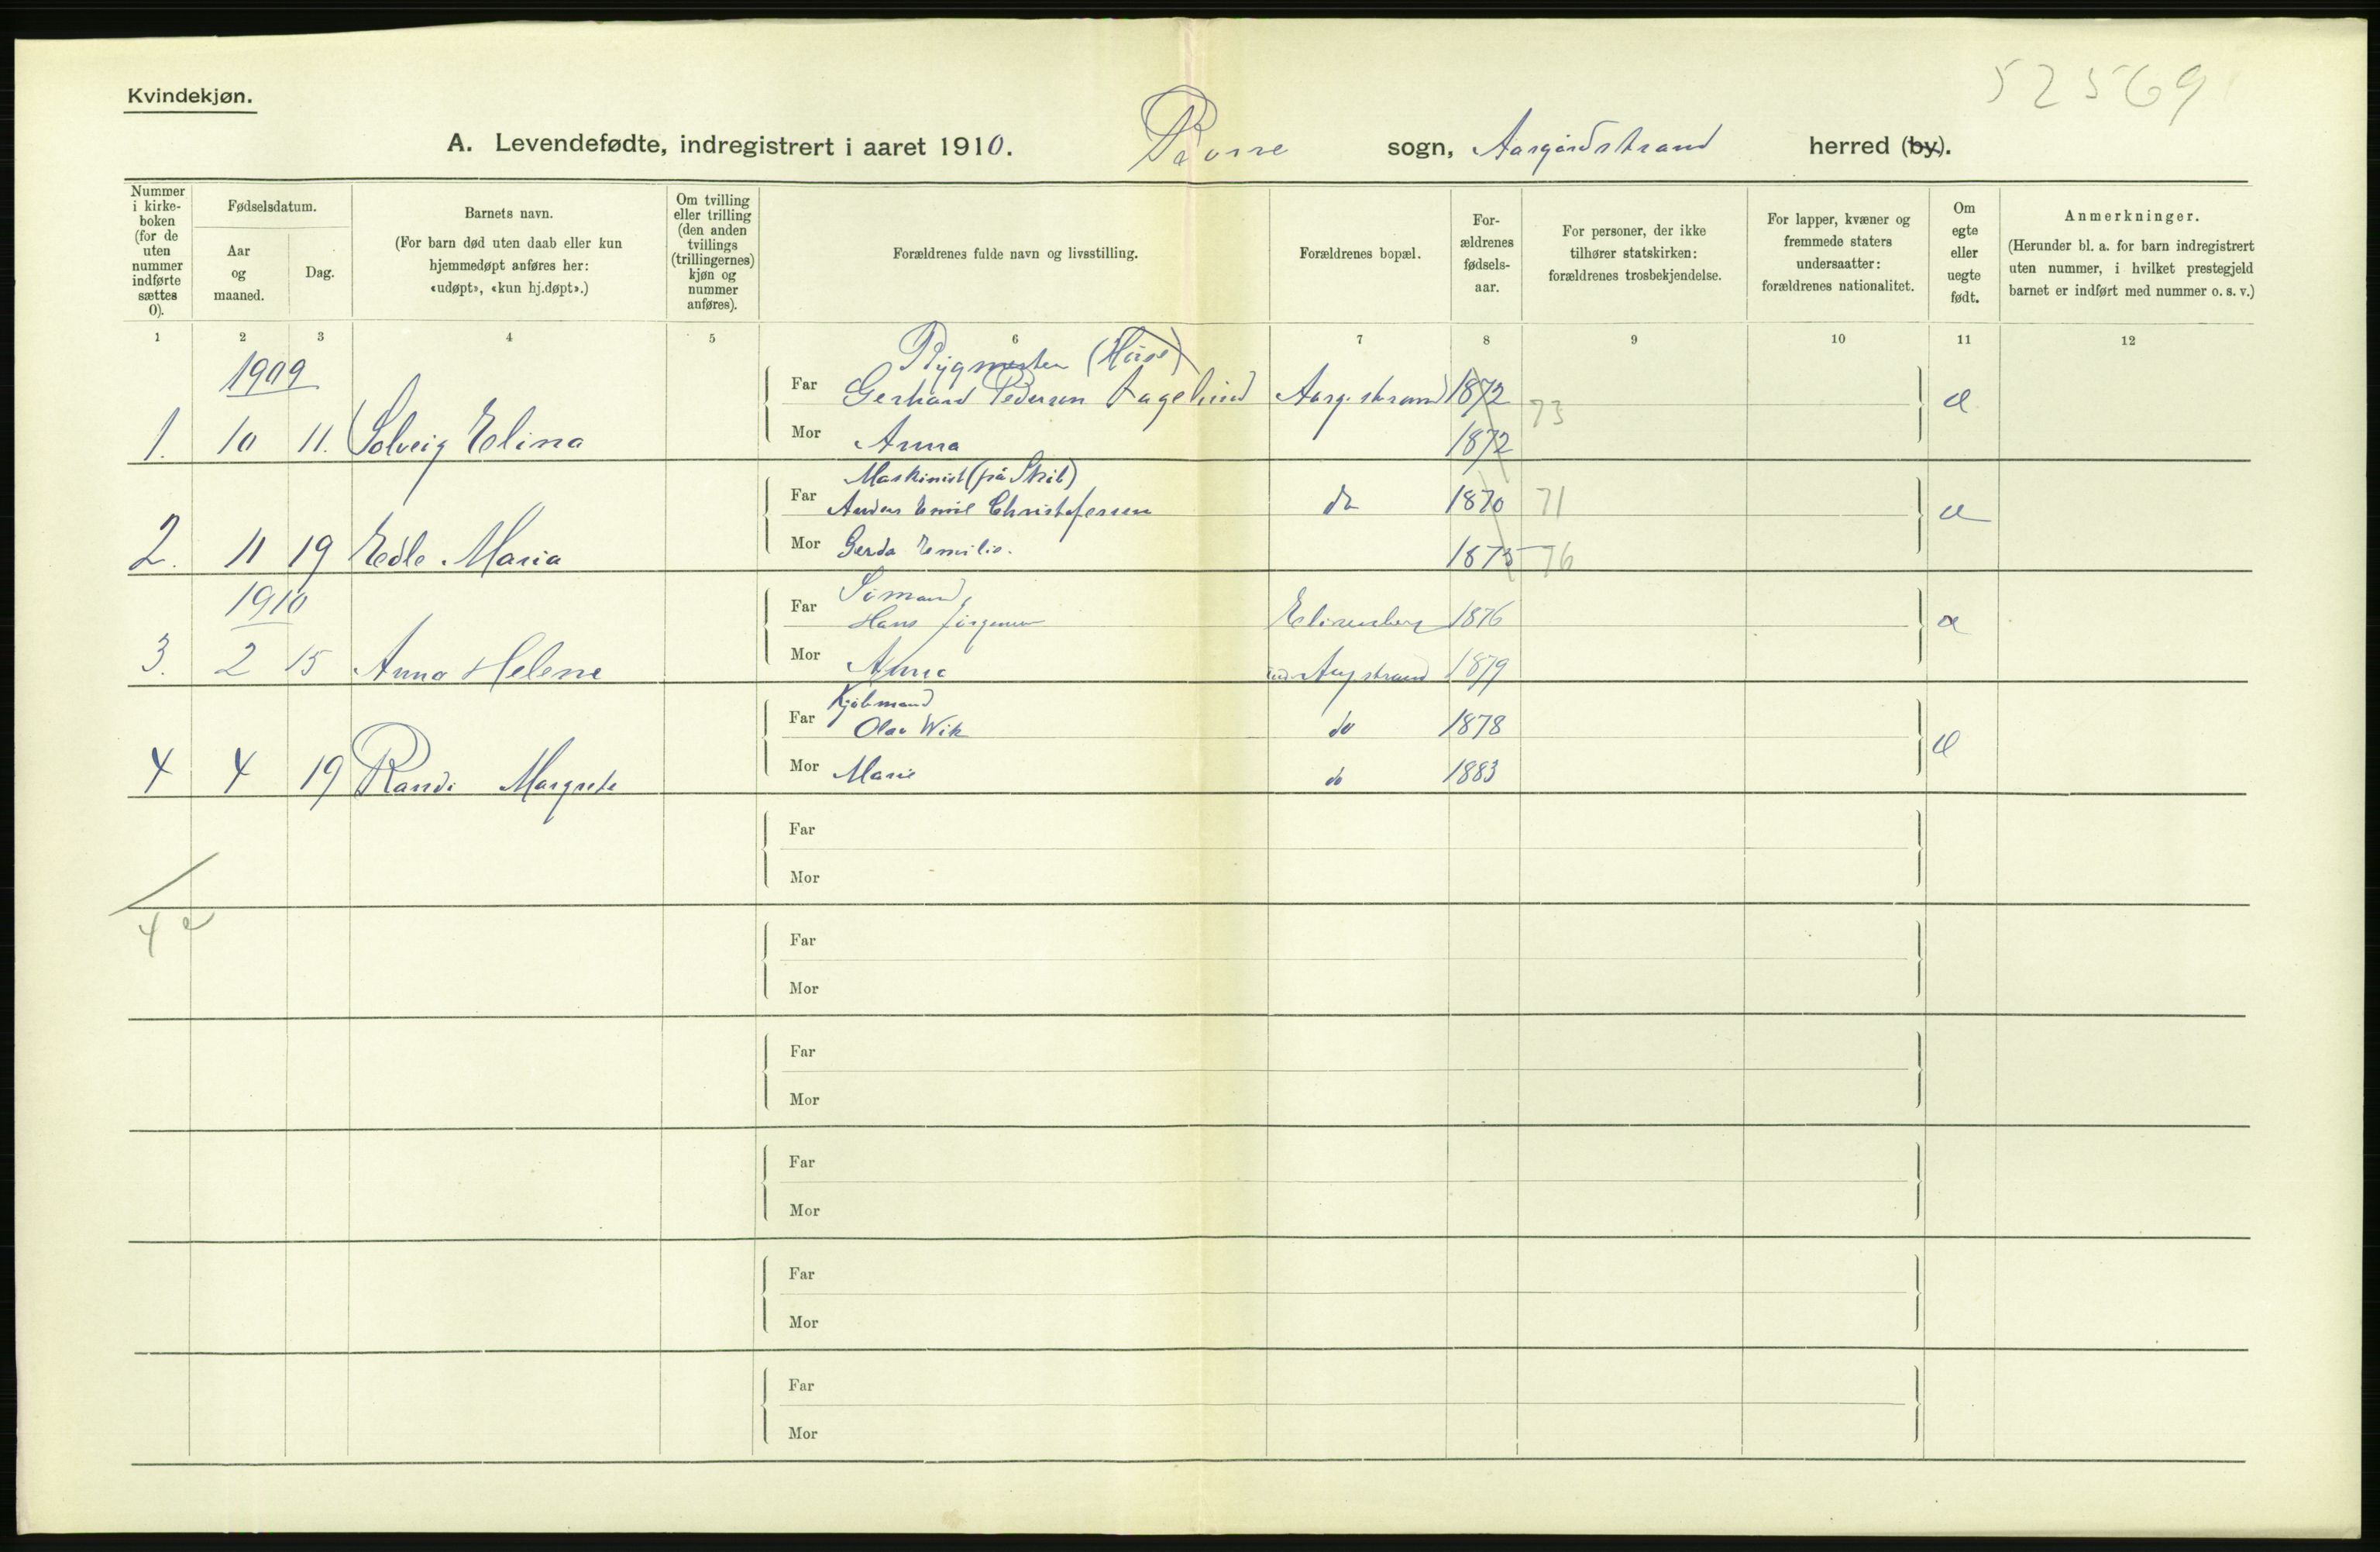 52569
Kvindekjøn.
A. Levendefødte, indregistrert i aaret 1910. Borre sogn, Aasgårdstrand herred (by).
Nummer i kirke- boken (for de uten nummer indførte sættes 0).
Fødselsdatum.
Aar og maaned.
Dag.
Barnets navn.
(For barn død uten daab eller kun hjemmedøpt anføres her: «udøpt», «kun hj.døpt».)
Om tvilling eller trilling (den anden tvillings (trillingernes) kjøn og nummer anføres).
Forældrenes fulde navn og livsstilling.
Forældrenes bopæl.
For- ældrenes fødsels- aar.
For personer, der ikke tilhører statskirken: forældrenes trosbekjendelse.
For lapper, kvæner og fremmede staters undersaatter: forældrenes nationalitet.
Om egte eller uegte født.
Anmerkninger.
(Herunder bl. a. for barn indregistrert uten nummer, i hvilket prestegjeld barnet er indført med nummer o. s. v.)
1 2 3 4 5 6 7 8 9 10 11 12
1909
Bygmester (Huse)
Far Gerhard Pedersen Fagelund Aasg.strand 1872 73 e
1. 10 11. Solveig Elina Mor Anna 1872
Maskinist (på Skib)
Far Anders Emil Christofersen do 1870 71 e
2. 11 19 Edle Maria Mor Gerda Emilie. 1875 76
1910
Sømand,
Far Hans Jørgensen Elisenberg 1876 e
3. 2 15 Anna Helene Mor Anna 1879
Kjøbmand
Far Olav Wik do 1878 e
4 4 19 Randi Margrete Mor Marie do 1883
Far
Mor
4 e
Far
Mor
Far
Mor
Far
Mor
Far
Mor
Far
Mor